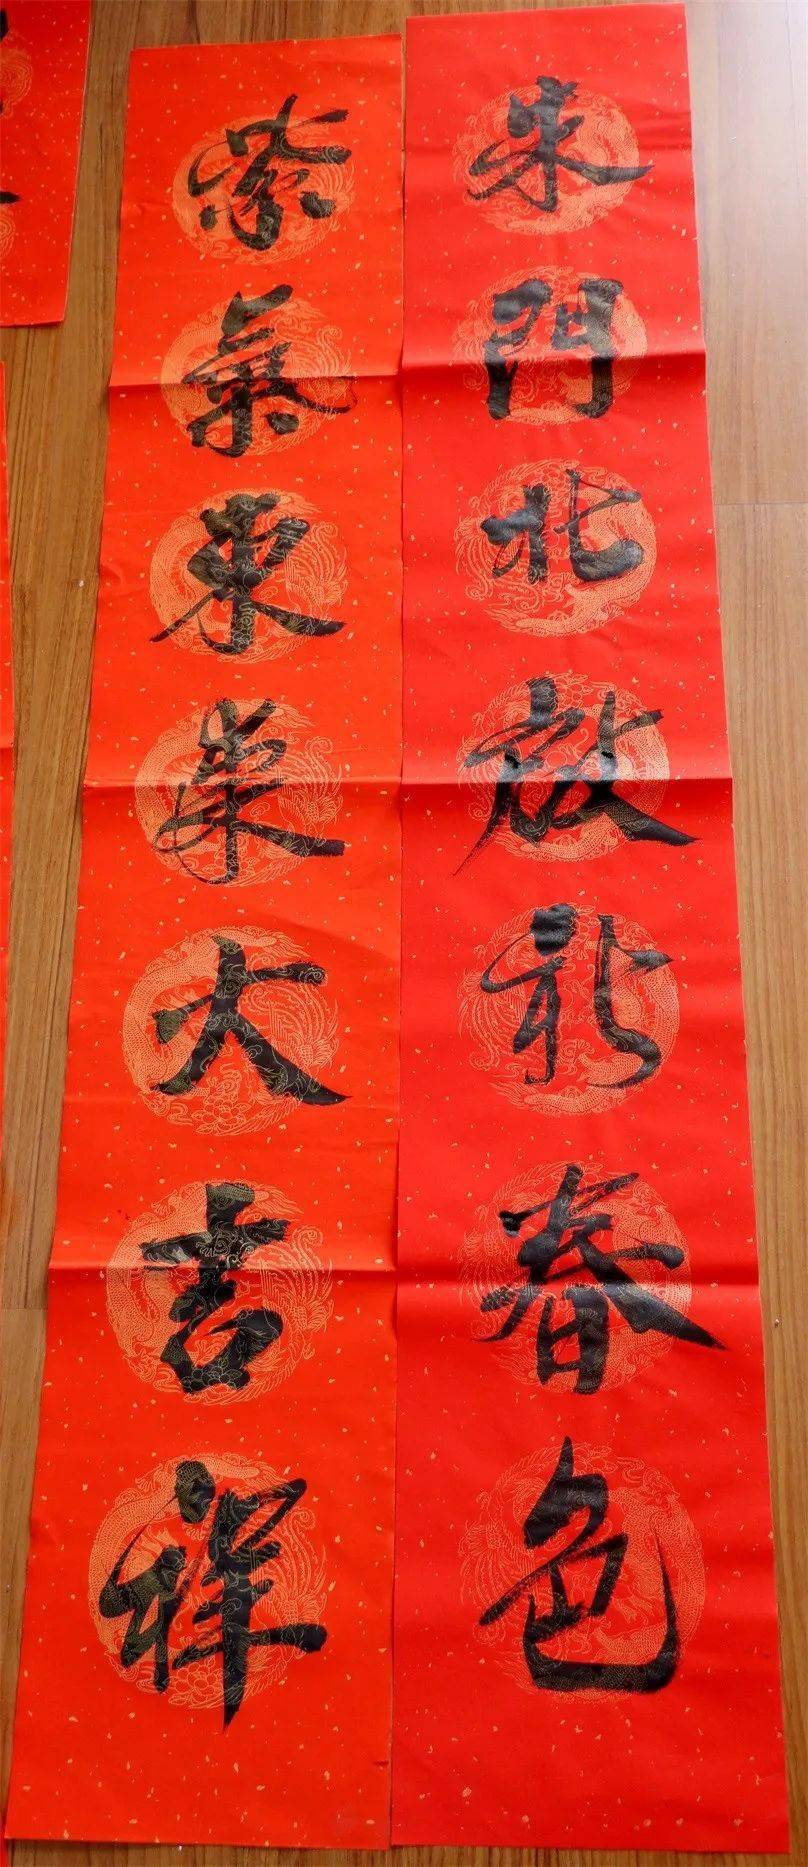 朱門北啟新春色
紫氣東來大吉祥